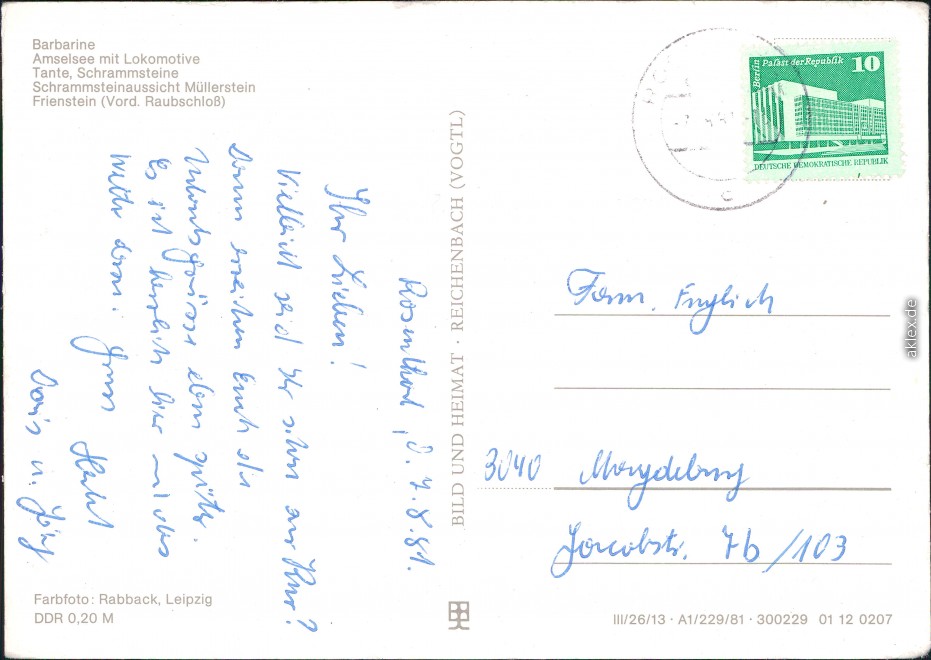 Barbarine
Amselsee mit Lokomotive
Tante, Schrammsteine
Schrammsteinaussicht Müllerstein
Frienstein (Vord. Raubschloß)
Rosenthal, d. 7.8.81.
Ihr Lieben!
Vielleicht seid Ihr schon zur Kur?
Dann erreichen Euch die
Urlaubsgrüsse eben später.
Es ist herrlich hier und das
Wetter dazu. Gruss
Herbert
Doris u. Jörg
Farbfoto: Rabback, Leipzig
DDR 0,20 M
BILD UND HEIMAT · REICHENBACH (VOGTL)
Berlin Palast der Republik 10
DEUTSCHE DEMOKRATISCHE REPUBLIK
c
Fam. Englich
3040 Magdeburg
Jacobstr. 7b/103
III/26/13 · A1/229/81 · 300229 01 12 0207
aklex.de